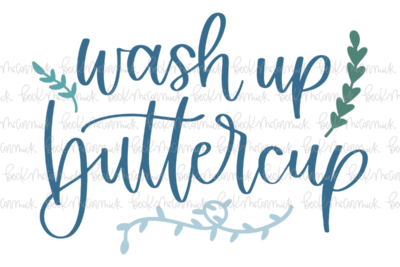 wash up
buttercup